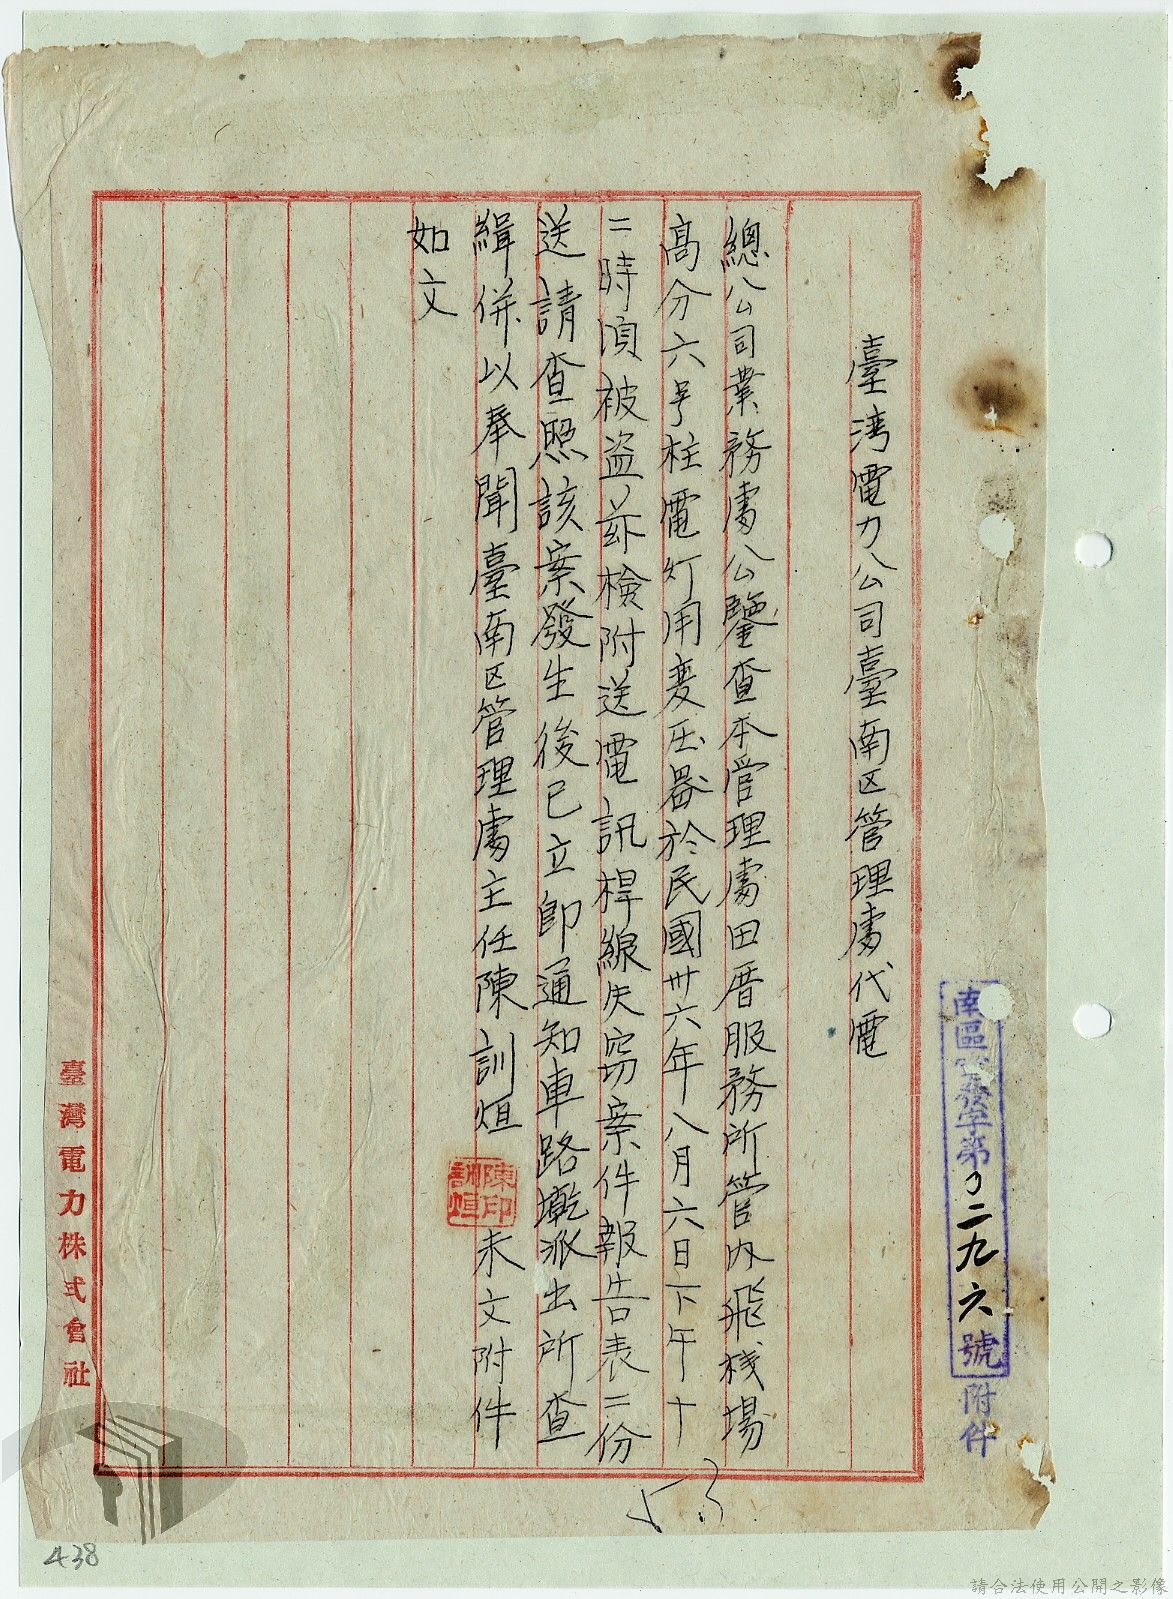 南區管發字第0二九六號附件
臺湾電力公司臺南区管理處代電
總公司業務處公鑒查本管理處田厝服務所管內飛机場
高分六号柱電灯用変压器於民國卅六年八月六日下午十
二時頃被盗茲檢附送電訊桿線失窃案件報告表二份
送請查照該案發生後已立即通知車路墘派出所查
緝併以奉聞臺南区管理處主任陳訓烜
陳印訓烜
未文附件
如文
臺灣電力株式會社
53
438
請合法使用公開之影像